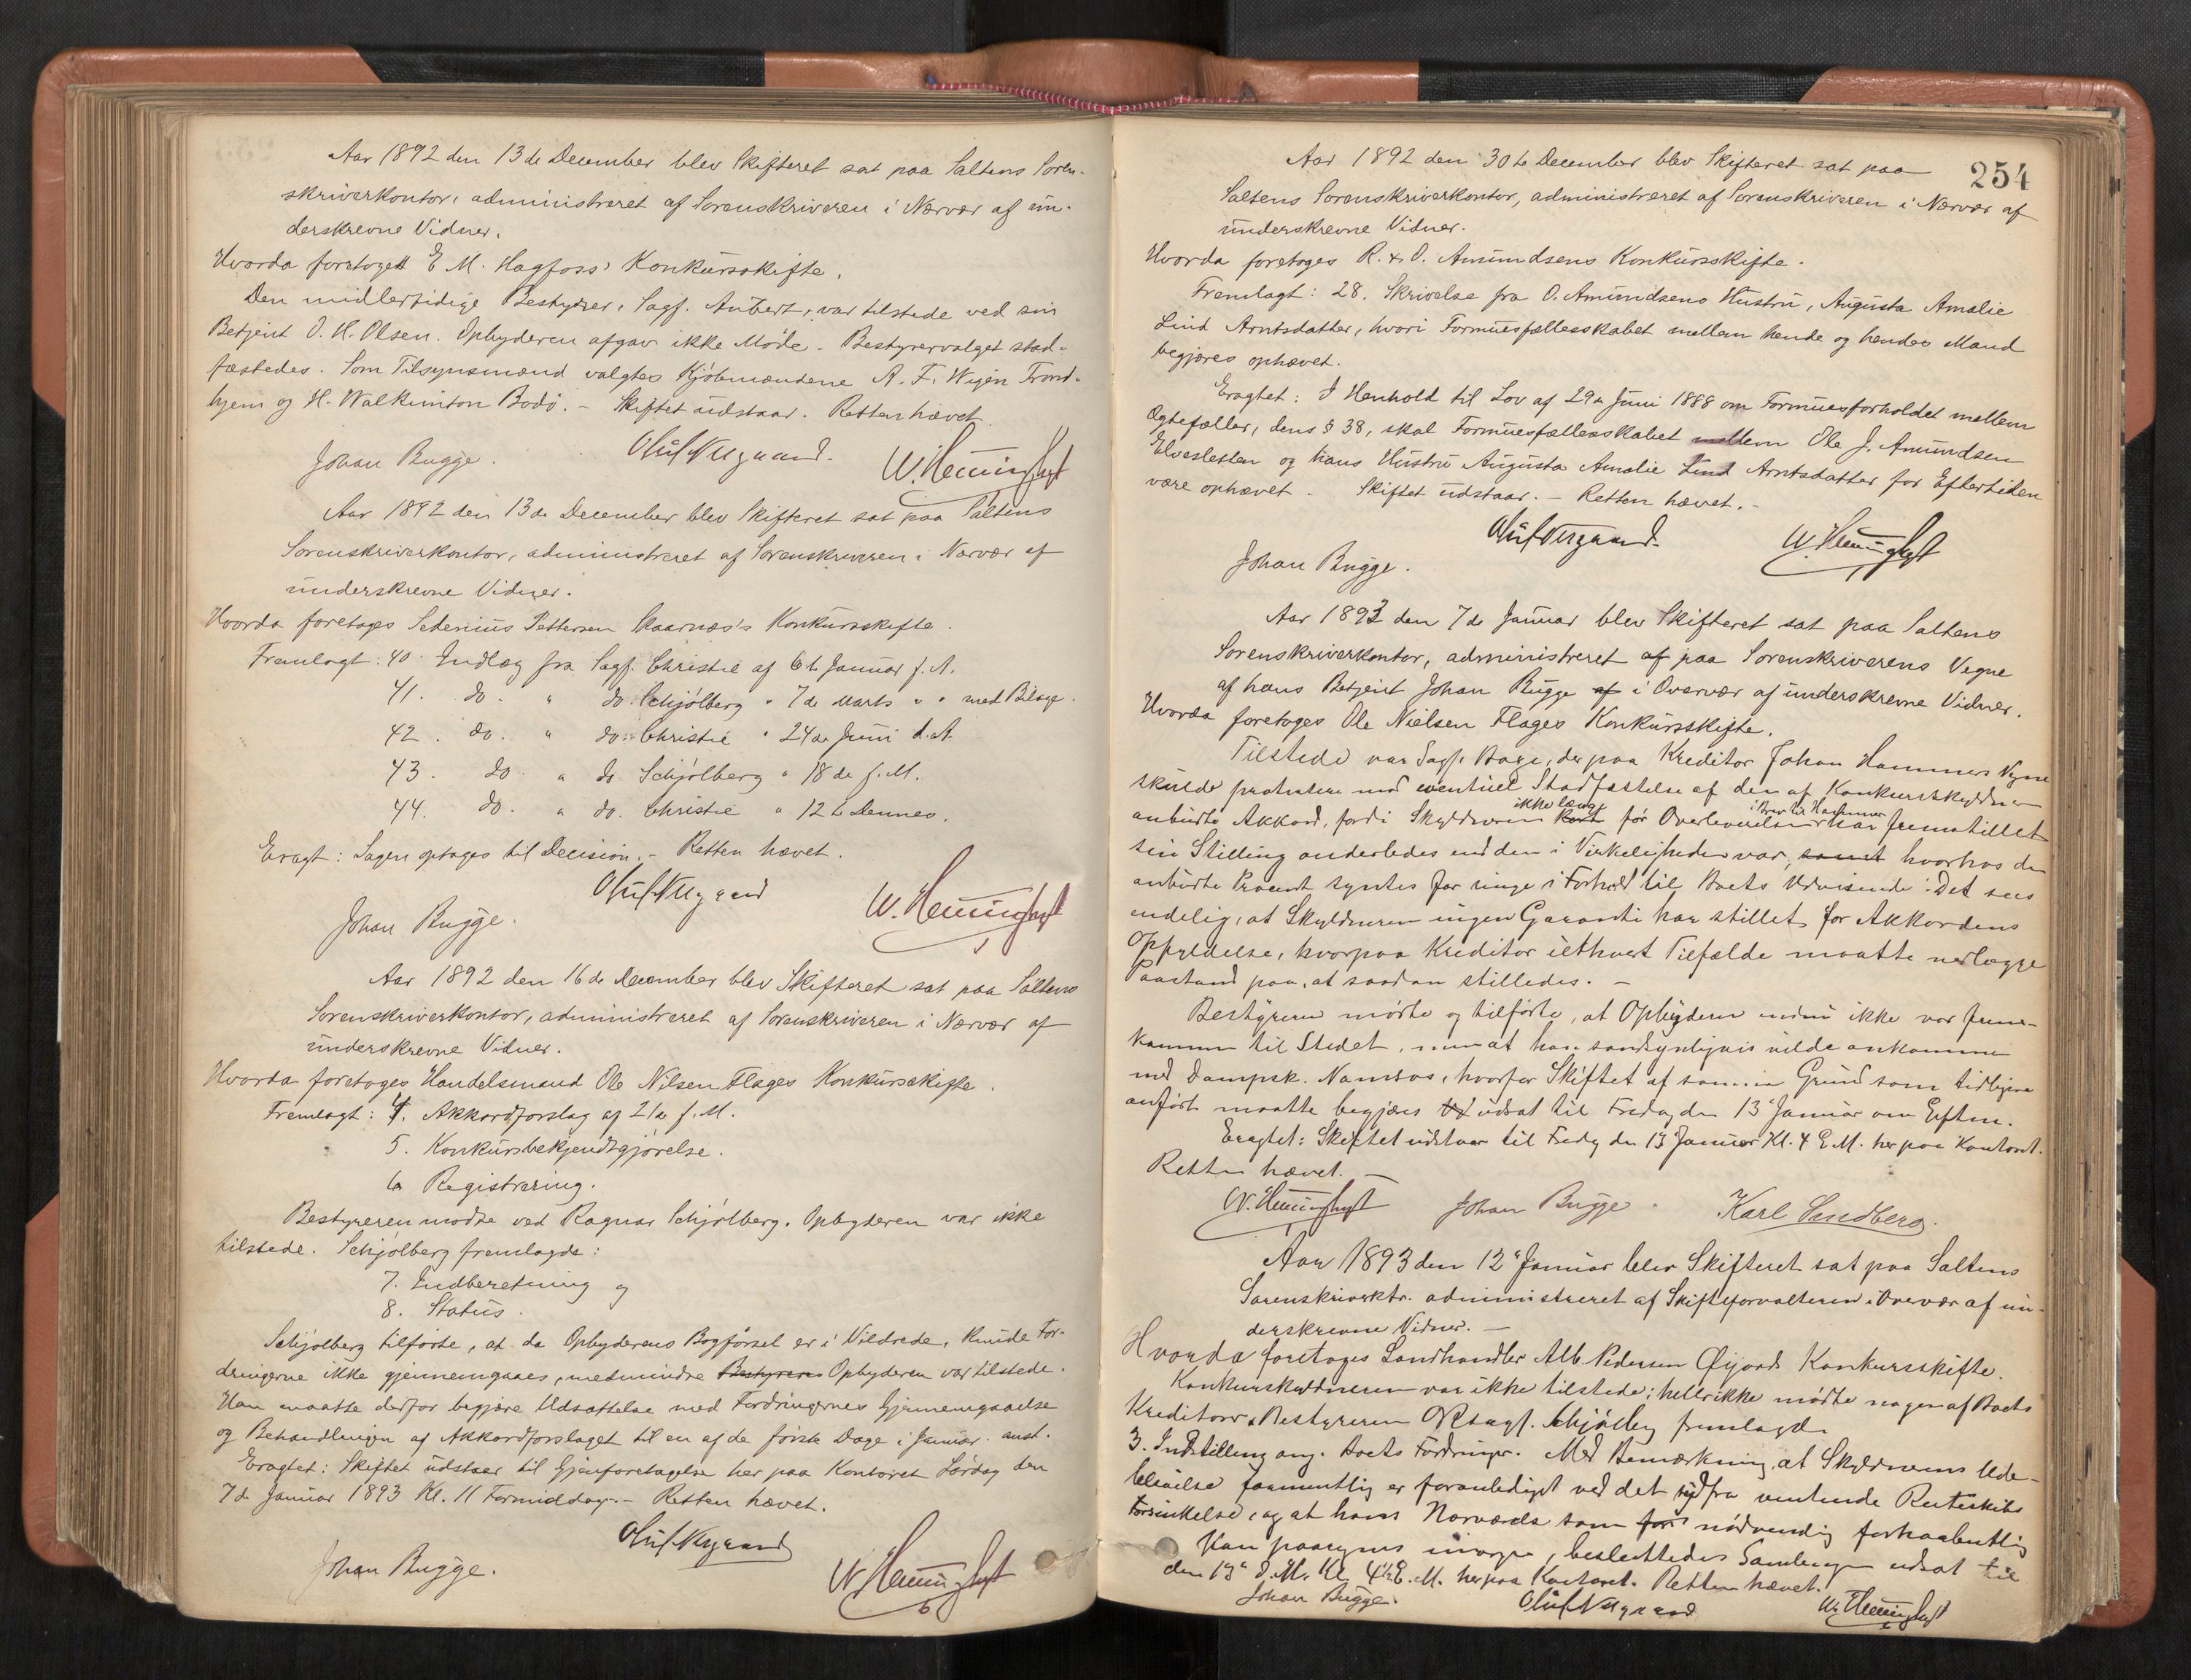 Aar 1892 den 13de December blev Skifteret sat paa Saltens Soren-
skriverkontor, administreret af Sorenskriveren i Nærvær af un-
derskrevne Vidner.
Hvorda foretoges E M. Hagfoss' Konkursskifte.
Den midlertidige Bestyrer, Sagf. Aubert, var tilstede ved sin
Betjent O. H. Olsen. Opbyderen afgav ikke Møde. Bestyrervalget stad-
fæstedes. Som Tilsynsmænd valgtes Kjøbmændene A. F. Wigen Trond-
hjem og H. Walkimton Bodø. – Skiftet udstaar. Retten hævet
Johan Bugge.
Aar 1892 den 13de December blev Skifteret sat paa Saltens
Sorenskriverkontor, administreret af Sorenskriveren i Nærvær af
underskrevne Vidner.
Hvorda foretoges Sedenius Pettersen Skaarnæs's Konkursskifte.
Fremlagt: 40 Indlæg fra Sagf. Christie af 6te Januar f. A.
41. do. " do. Schjølberg " 7de Marts " " med Bilage.
42. do. " do. Christie " 24de Juni d. A.
43. do. " do Schjølberg " 18de f. M.
44. do. " do. Christie " 12te Dennes.
Eragt: Sagen optages til Decision. – Retten hævet.
Johan Bugge.
Aar 1892 den 16de December blev Skifteret sat paa Saltens
Sorenskriverkontor, administreret af Sorenskriveren i Nærvær af
underskrevne Vidner.
Hvorda foretoges Handelsmand Ole Nilsen Flages Konkursskifte.
Fremlagt: 4. Akkordforslag af 21de f. M.
5. Konkursbekjendtgjørelse.
6 Registrering.
Bestyreren mødte ved Ragnar Schjølberg. Opbyderen var ikke
tilstede. Schjølberg fremlagde:
7. Indberetning og
8. Status.
Schjølberg tilførte, at da Opbyderens Bogførsel er i Vildrede, kunde For-
dringerne ikke gjennemgaaes, medmindre Bestyreren Opbyderen var tilstede.
Han maatte derfor begjære Udsættelse med Fordringernes Gjennemgaaelse
og Behandlingen af Akkordforslaget til en af de første Dage i Januar anst.
Eragtet: Skiftet udstaar til Gjenforetagelse her paa Kontoret Lørdag den
7de Januar 1893 Kl. 11 Formiddag. – Retten hævet.
Johan Bugge.
254
Aar 1892 den 30te December blev Skifteret sat paa
Saltens Sorenskriverkontor, administreret af Sorenskriveren i Nærvær af
underskrevne Vidner.
Hvorda foretoges R. & O. Amundsens Konkursskifte.
Fremlagt: 28. Skrivelse fra O. Amundsens Hustru, Augusta Amalie
Lind Arntsdatter, hvori Formuesfællesskabet mellem hende og hendes Mand
begjæres ophævet.
Eragtet: I Henhold til Lov af 29de Juni 1888 om Formuesforholdet mellem
Ægtefæller, dens § 38, skal Formuesfællesskabet mellem Ole J. Amundsen
Elvesletten og hans Hustru Augusta Amalie Lind Arntsdatter for Eftertiden
være ophævet. Skiftet udstaar. – Retten hævet. –
Johan Bugge.
Aar 1893 den 7de Januar blev Skifteret sat paa Saltens
Sorenskriverkontor, administreret af paa Sorenskriverens Vegne
af hans Betjent Johan Bugge af i Overvær af underskrevne Vidner.
Hvorda foretoges Ole Nielsen Flages Konkursskifte.
Tilstede var Sagf. der paa Kreditor Johan Hammers Vegne
skulde protestere mod eventuel Stadfæstelse af den af Konkursskyldneren
anbudte Akkord, fordi Skyldneren kort ikke længe før Overleverelsen i Brev til Hammer har fremstillet
sin Stilling anderledes end den i Virkeligheden var, samt hvorhos de
anbudte Procent syntes for ringe i Forhold til Boets Udvisende. Det sees
endelig, at Skyldneren ingen Garanti har stillet for Akkordens
Opfyldelse, hvorpaa Kreditor i ethvert Tilfælde maatte nedlægge
Paastand paa, at saadan stilledes. –
Bestyreren mødte og tilførte, at Opbyderen endnu ikke var frem-
kommen til Stedet, men at han sandsynligvis vilde ankomme
med Dampsk. Namsos, hvorfor Skiftet af samme Grund som tidligere
anført maatte begjæres udsat til Fredag den 13de Januar om Efterm.
Eragtet: Skiftet udstaar til Fredag den 13 Januar Kl. 4 E. M. her paa Kontoret.
Retten hævet. –
Johan Bugge. Karl Sundberg.
Aar 1893 den 12te Januar blev Skifteret sat paa Saltens
Sorenskriverktr. administreret af Skifteforvalteren i Overvær af un-
derskrevne Vidner. –
Hvorda foretoges Landhandler Alb. Pedersen Øijords Konkursskifte.
Konkursskyldneren var ikke tilstede; heller ikke mødte nogen af Boets
Kreditorer. Bestyreren Sagf. Schjølberg fremlagde
3. Indstilling ang. Boets Fordringer. Med Bemærkning, at Skyldnerens Ude-
blivelse formentlig er foranlediget ved det sydfra ventende Ruteskibs
Forsinkelse, og at hans Nærværelse som nødvendig forhaabentlig
kan paaregnes imorgen, besluttedes Samlingen udsat til
den 13de d. M. Kl. 4½ E. M. her paa Kontoret. Retten hævet.
Johan Bugge.